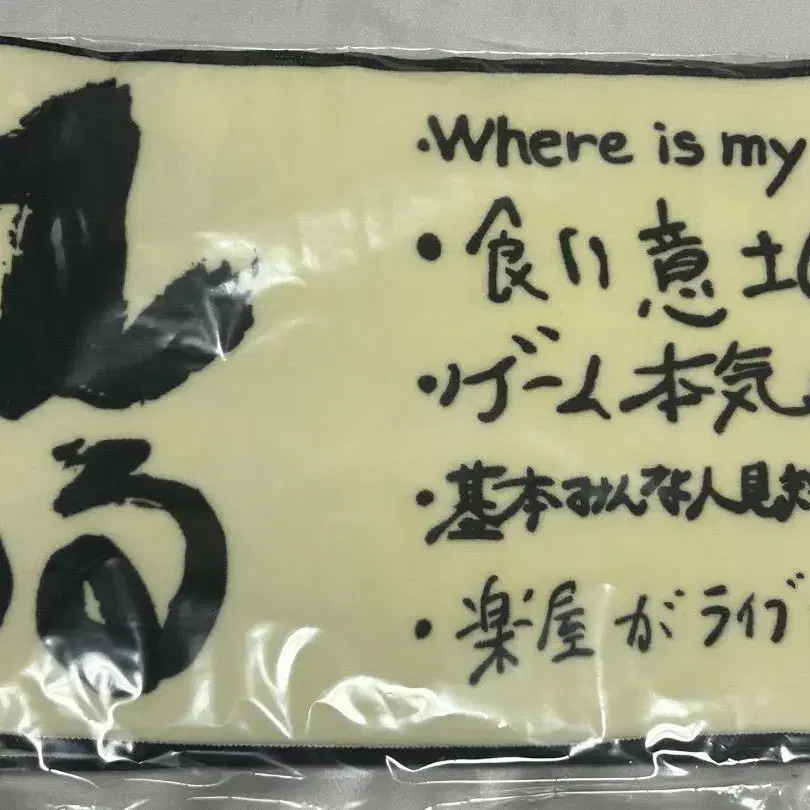 ・Where is my
・食い意地
・ゲーム本気
・基本みんな人見知
・楽屋がライブ